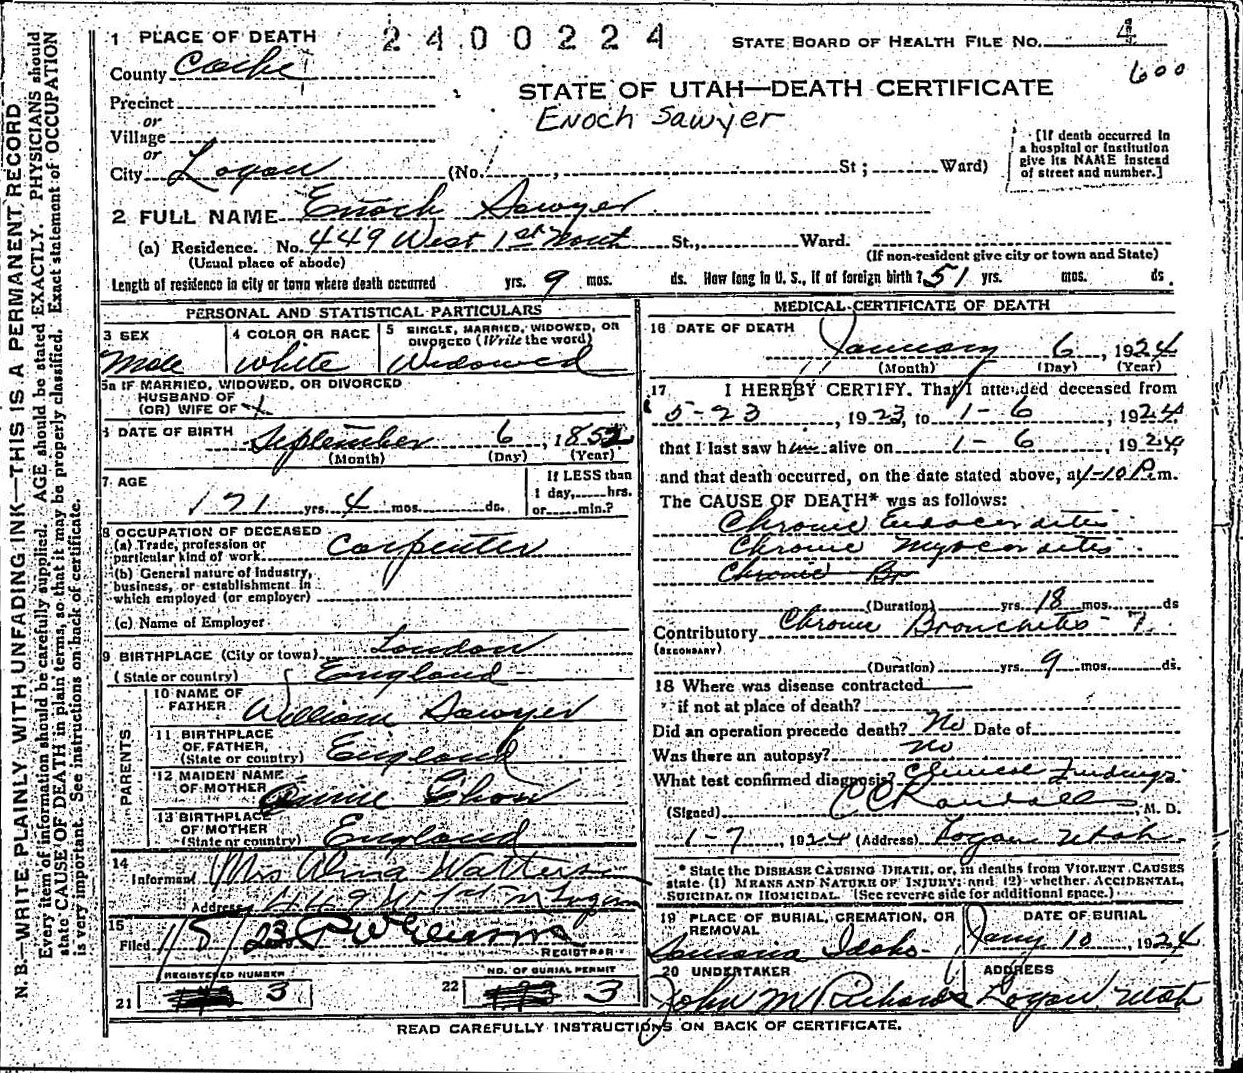 1 PLACE OF DEATH 2400224 STATE BOARD OF HEALTH FILE NO. 4
600
County Cache
STATE OF UTAH—DEATH CERTIFICATE
Precinct
Enoch Sawyer
or
Village
or
City Logan (No. , St ; Ward)
[If death occurred in
a hospital or institution
give its NAME instead
of street and number.]
2 FULL NAME Enoch Sawyer
(a) Residence. No. 449 West 1st North St., Ward.
(Usual place of abode) (If non-resident give city or town and State)
Length of residence in city or town where death occurred yrs. 9 mos. ds. How long in U. S., if of foreign birth? 51 yrs. mos. ds.
PERSONAL AND STATISTICAL PARTICULARS
3 SEX
Male
4 COLOR OR RACE
White
5 SINGLE, MARRIED, WIDOWED, OR
DIVORCED (Write the word)
Widowed
5a IF MARRIED, WIDOWED, OR DIVORCED
HUSBAND OF
(OR) WIFE OF
6 DATE OF BIRTH September 6, 1852
(Month) (Day) (Year)
7 AGE
71 yrs. 4 mos. ds.
If LESS than
1 day, hrs.
or min.?
8 OCCUPATION OF DECEASED
(a) Trade, profession or
particular kind of work Carpenter
(b) General nature of industry,
business, or establishment in
which employed (or employer)
(c) Name of Employer
9 BIRTHPLACE (City or town) London
(State or country) England
PARENTS
10 NAME OF
FATHER William Sawyer
11 BIRTHPLACE
OF FATHER,
(State or country) England
12 MAIDEN NAME
OF MOTHER
13 BIRTHPLACE
OF MOTHER
(State or country) England
14
Informant Mrs
Address 449 W 1st N Logan
15
Filed 1/8/23
REGISTRAR
REGISTERED NUMBER
21 3
NO. OF BURIAL PERMIT
22 3
MEDICAL CERTIFICATE OF DEATH
16 DATE OF DEATH
January 6, 1924
(Month) (Day) (Year)
17 I HEREBY CERTIFY. That I attended deceased from
5-23, 1923, to 1-6, 1924,
that I last saw him alive on 1-6, 1924,
and that death occurred, on the date stated above, at 1-10 P.m.
The CAUSE OF DEATH* was as follows:
Chronic Endocarditis
Chronic Myocarditis
Chronic Br
(Duration) yrs. 18 mos. ds
Contributory Chronic Bronchitis
(SECONDARY)
(Duration) yrs. 9 mos. ds.
18 Where was disease contracted
if not at place of death?
Did an operation precede death? No Date of
Was there an autopsy? no
What test confirmed diagnosis? Clinical Findings
(Signed) C C Randall, M. D.
1-7, 1924 (Address) Logan Utah
* State the DISEASE CAUSING DEATH, or, in deaths from VIOLENT CAUSES
state (1) MEANS AND NATURE OF INJURY; and (2) whether ACCIDENTAL,
SUICIDAL OR HOMICIDAL. (See reverse side for additional space.)
19 PLACE OF BURIAL, CREMATION, OR
REMOVAL
Samaria Idaho
DATE OF BURIAL
Jany 10, 1924
20 UNDERTAKER
John M Richards
ADDRESS
Logan, Utah
READ CAREFULLY INSTRUCTIONS ON BACK OF CERTIFICATE.
N. B.—WRITE PLAINLY WITH UNFADING INK—THIS IS A PERMANENT RECORD
Every item of information should be carefully supplied. AGE should be stated EXACTLY. PHYSICIANS should
state CAUSE OF DEATH in plain terms, so that it may be properly classified. Exact statement of OCCUPATION
is very important. See instructions on back of certificate.